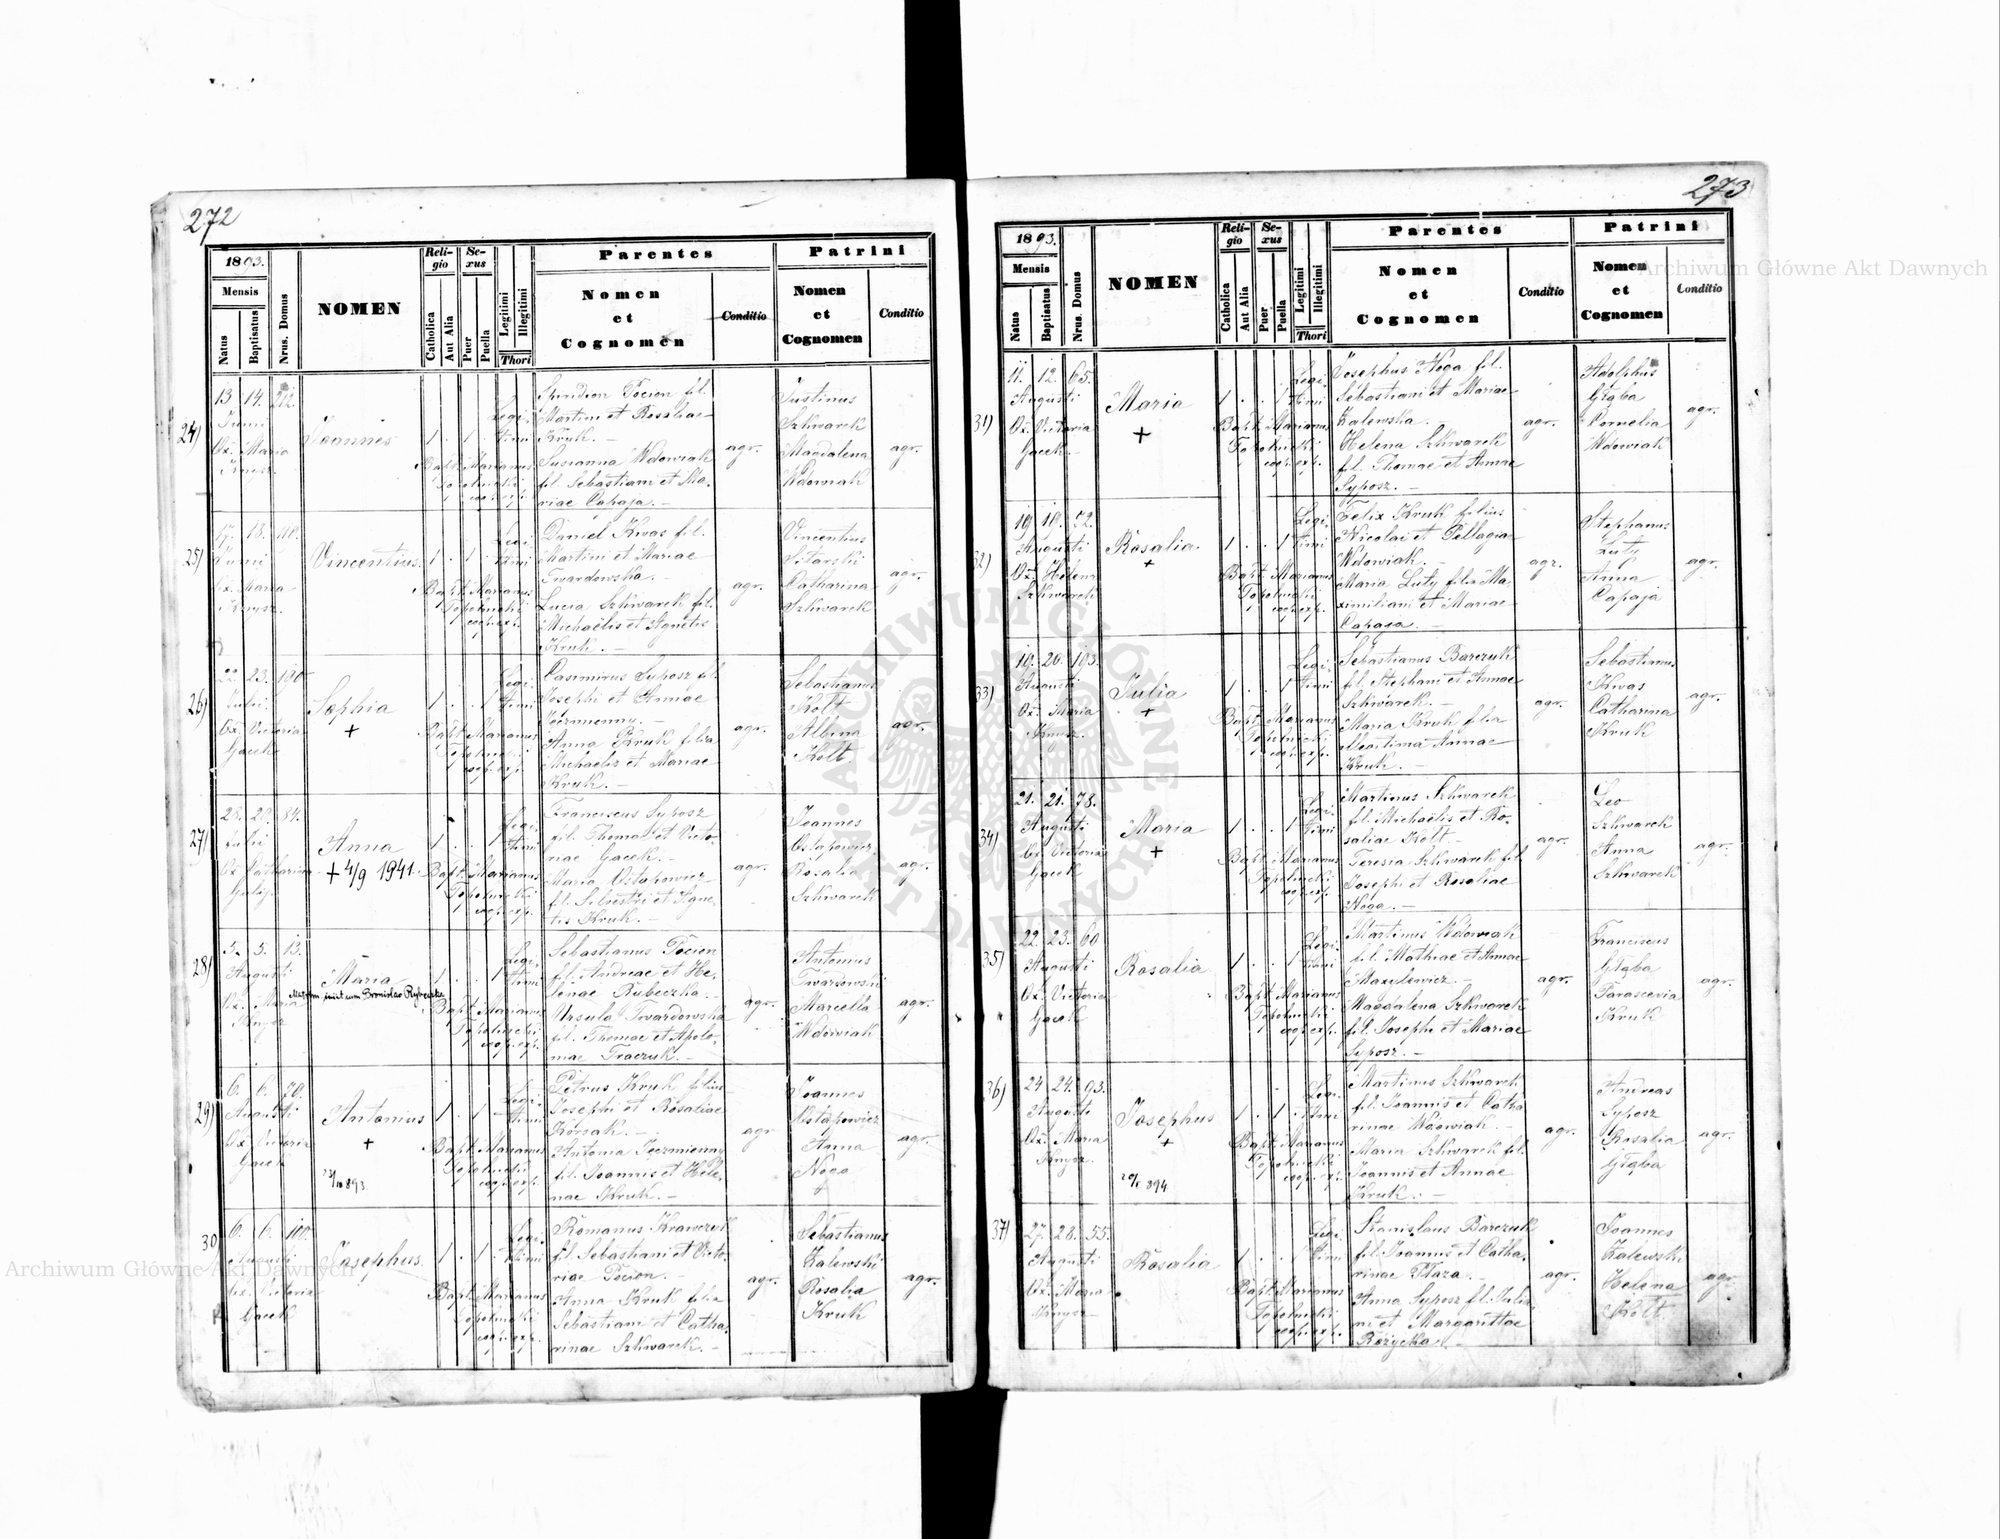 272
1893.
Mensis
Natus
Baptisatus
Nrus. Domus
NOMEN
Reli-
gio
Catholica
Aut Alia
Se-
xus
Puer
Puella
Legitimi
Illegitimi
Thori
Parentes
Nomen
et
Cognomen
Conditio
Patrini
Nomen
et
Cognomen
Conditio
24)
13. 14. 212.
Junii
Ox. Maria
Knysz
Joannes
1 . 1 .
Legi-
timi
Bapt. Marianus
Topolnicki
coop. exp.
Spiridion Tocion fil.
Martini et Rosaliae
Kruk. —
Susanna Wdowiak
fil. Sebastiani et Ma-
riae Capaja. —
agr.
Justinus
Szkwarek
Magdalena
Wdowiak
agr.
25)
17. 18. 40.
Junii
Ox. Maria
Knysz.
Vincentius.
1 . 1 .
Legi-
timi
Bapt. Marianus
Topolnicki
coop. exp.
Daniel Kwas fil.
Martini et Mariae
Twardowska. —
Lucia Szkwarek fil.
Michaelis et Agnetis
Kruk. —
agr.
Vincentius
Sitarski
Catharina
Szkwarek
agr.
26)
22. 23. 190
Julii
Ox. Victoria
Gacek
Sophia
+
1 . . 1
Legi-
timi
Bapt. Marianus
Topolnicki
coop. exp.
Casimirus Syposz fil.
Josephi et Annae
Jeczmienny. —
Anna Kruk filia
Michaelis et Mariae
Kruk. —
agr.
Sebastianus
Kolt
Albina
Kolt.
agr.
27)
28. 28. 84.
Julii
Ox. Catharina
Anna
+ 4/9 1941.
1 . . 1
Legi-
timi
Bapt. Marianus
Topolnicki
coop. exp.
Franciscus Syposz
fil. Thomae et Victo-
riae Gacek. —
Maria Ostapowicz
fil. Silvestri et Agne-
tis Kruk. —
agr.
Joannes
Ostapowicz
Rosalia
Szkwarek
agr.
28)
5. 5. 13.
Augusti
Ox. Maria
Knysz
Maria
Matrim. iniit cum Bronislao Rybeczka
1 . . 1
Legi-
timi
Bapt. Marianus
Topolnicki
coop. exp.
Sebastianus Tocion
fil. Andreae et He-
lenae Rubeczka. —
Ursula Twardowska
fil. Thomae et Apolo-
niae Traczuk. —
agr.
Antonius
Twardowski
Marcella
Wdowiak
agr.
29)
6. 6. 70.
Augusti
Ox. Victoria
Gacek
Antonius
+
1 . 1 .
Legi-
timi
Bapt. Marianus
Topolnicki
coop. exp.
Petrus Kruk filius
Josephi et Rosaliae
Korsak. —
Antonia Jeczmienny
fil. Joannis et Hele-
nae Kruk. —
agr.
Joannes
Ostapowicz
Anna
Noga
agr.
30)
6. 6. 100.
Augusti
Ox. Victoria
Gacek
Josephus.
1 . 1 .
Legi-
timi
Bapt. Marianus
Topolnicki
coop. exp.
Romanus Krawczyk
fil. Sebastiani et Victo-
riae Tocion. —
Anna Kruk filia
Sebastiani et Catha-
rinae Szkwarek. —
agr.
Sebastianus
Zalewski
Rosalia
Kruk
agr.
273
1893.
Mensis
Natus
Baptisatus
Nrus. Domus
NOMEN
Reli-
gio
Catholica
Aut Alia
Se-
xus
Puer
Puella
Legitimi
Illegitimi
Thori
Parentes
Nomen
et
Cognomen
Conditio
Patrini
Nomen
et
Cognomen
Conditio
31)
11. 12. 65.
Augusti
Ox. Victoria
Gacek
Maria
+
1 . . 1
Legi-
timi
Bapt. Marianus
Topolnicki
coop. exp.
Josephus Noga fil.
Sebastiani et Mariae
Zalewska.
Helena Szkwarek
fil. Thomae et Annae
Syposz. —
agr.
Adolphus
Głąba
Cornelia
Wdowiak
agr.
32)
19. 19. 72.
Augusti
Ox. Helena
Szkwarek
Rosalia.
+
1 . . 1
Legi-
timi
Bapt. Marianus
Topolnicki
coop. exp.
Felix Kruk filius
Nicolai et Pellagiae
Wdowiak.
Maria Luty filia Ma-
ximiliani et Mariae
Capaja. —
agr.
Stephanus
Luty
Anna
Capaja
agr.
33)
19. 20. 193.
Augusti
Ox. Maria
Knysz.
Julia
+
1 . . 1
Legi-
timi
Bapt. Marianus
Topolnicki
coop. exp.
Sebastianus Barczuk
fil. Stephani et Annae
Szkwarek. —
Maria Kruk filia
Martini Annae
Kruk. —
agr.
Sebastianus
Kwas
Catharina
Kruk
agr.
34)
21. 21. 78.
Augusti
Ox. Victoria
Gacek
Maria
+
1 . . 1
Legi-
timi
Bapt. Marianus
Topolnicki
coop. exp.
Martinus Szkwarek
fil. Michaelis et Ro-
saliae Kolt. —
Teresia Szkwarek fil.
Josephi et Rosaliae
Noga. —
agr.
Leo
Szkwarek
Anna
Szkwarek
agr.
35)
22. 23. 60
Augusti
Ox. Victoria
Gacek
Rosalia
1 . . 1
Legi-
timi
Bapt. Marianus
Topolnicki
coop. exp.
Martinus Wdowiak
fil. Mathiae et Annae
Maxylewicz. —
Magdalena Szkwarek
fil. Josephi et Mariae
Syposz. —
agr.
Franciscus
Głąba
Parascevia
Kruk
agr.
36)
24. 24. 93.
Augusti
Ox. Maria
Knysz.
Josephus
+
1 . 1 .
Legi-
timi
Bapt. Marianus
Topolnicki
coop. exp.
Martinus Szkwarek
fil. Joannis et Catha-
rinae Wdowiak. —
Maria Szkwarek fil.
Joannis et Annae
Kruk. —
agr.
Andreas
Syposz
Rosalia
Głąba
agr.
37)
27. 28. 55.
Augusti
Ox. Maria
Knysz
Rosalia
1 . . 1
Legi-
timi
Bapt. Marianus
Topolnicki
coop. exp.
Stanislaus Barczuk
fil. Joannis et Catha-
rinae Płaza. —
Anna Syposz fil. Julia-
ni et Margarittae
Rożycka
agr.
Joannes
Zalewski
Helena
Kolt.
agr.
Archiwum Główne Akt Dawnych
Archiwum Główne Akt Dawnych
ARCHIWUM GŁÓWNE AKT DAWNYCH